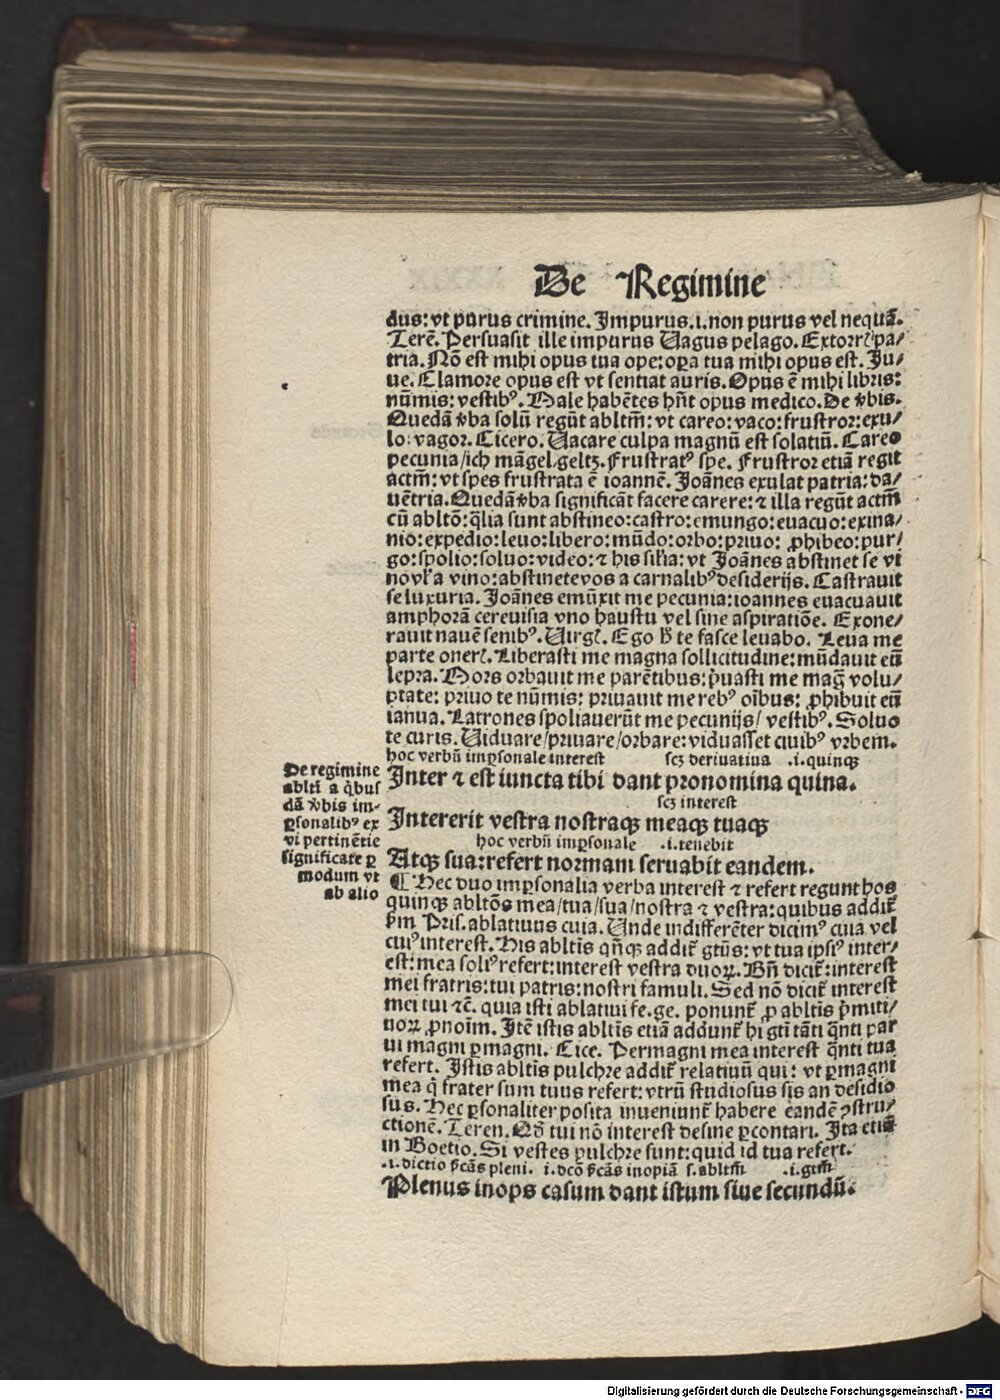 De Regimine
dus: vt purus crimine. Impurus.i.non purus vel nequā.
Terē. Persuasit ille impurus Uagus pelago. Extorrꝭ pa/
tria. Nō est mihi opus tua ope: oꝑa tua mihi opus est. Iu/
ue. Clamore opus est vt sentiat auris. Opus ē mihi libris:
nūmis: vestibꝰ. Male habētes hn̄t opus medico. De v̄bis.
Quedā v̄ba solū regūt abltm̄: vt careo: vaco: frustror: exu/
lo: vagor. Cicero. Uacare culpa magnū est solatiū. Careo
pecunia/ich māgel geltz. Frustratꝰ spe. Frustror etiā regit
actm̄: vt spes frustrata ē ioannē. Joānes exulat patria: da/
uētria. Quedā v̄ba significāt facere carere: ⁊ illa regūt actm̄
cū abltō: q̄lia sunt abstineo: castro: emungo: euacuo: exina/
nio: expedio: leuo: libero: mūdo: orbo: priuo: ꝓhibeo: pur/
go: spolio: soluo: video: ⁊ his sil'ia: vt Joānes abstinet se vi
no vl' a vino: abstinete vos a carnalibꝰ desiderijs. Castrauit
se luxuria. Joānes emūxit me pecunia: ioannes euacuauit
amphorā cereuisia vno haustu vel sine aspiratiōe. Exone/
rauit nauē senibꝰ. Uirgꝭ. Ego h̄ te fasce leuabo. Leua me
parte onerꝭ. Liberasti me magna sollicitudine: mūdauit eū
lepra. Mors orbauit me parētibus: p̄uasti me maḡ volu/
ptate: priuo te nūmis: priuauit me rebꝰ oībus: ꝓhibuit eū
ianua. Latrones spoliauerūt me pecunijs/ vestibꝰ. Soluo
te curis. Uiduare/priuare/orbare: viduasset ciuibꝰ vrbem.
hoc verbū imꝑsonale interest scꝫ deriuatiua .i.quinqꝫ
Inter ⁊ est iuncta tibi dant pronomina quina.
scꝫ interest
Intererit vestra nostraqꝫ meaqꝫ tuaqꝫ
hoc verbū imꝑsonale .i.tenebit
Atqꝫ sua: refert normam seruabit eandem.
De regimine
ablti a q̇bus
dā v̄bis im-
ꝑsonalibꝰ ex
vi pertinētie
significate ꝑ
modum vt
ab alio
¶ Hec duo imꝑsonalia verba interest ⁊ refert regunt hos
quinqꝫ abltōs mea/tua/sua/nostra ⁊ vestra: quibus addit̄
ẜm Pris. ablatiuus cuia. Unde indifferēter dicimꝰ cuia vel
cuiꝰ interest. His abltis qn̄qꝫ addit̄ gtūs: vt tua ipsiꝰ inter/
est: mea soliꝰ refert: interest vestra duoꝝ. Bn̄ dicit̄: interest
mei fratris: tui patris: nostri famuli. Sed nō dicit̄ interest
mei tui ⁊c. quia isti ablatiui fe.ge. ponunt̄ ꝓ abltis p̄miti/
uoꝝ ꝓnoīm. Itē istis abltīs etiā addunt̄ hi gtī tāti q̄nti par
ui magni ꝑmagni. Cice. Permagni mea interest q̄nti tua
refert. Istis abltīs pulchre addit̄ relatiuū qui: vt ꝑmagni
mea q̇ frater sum tuus refert: vtrū studiosus sis an desidio
sus. Hec ꝑsonaliter posita inueniunt̄ habere eandē ꝯstru/
ctionē. Teren. Qd̄ tui nō interest desine ꝑcontari. Ita etiā
in Boetio. Si vestes pulchre sunt: quid id tua refert.
.i.dictio ẜcās pleni. i.dcō ẜcās inopiā s.abltm̄ .i.gtm̄
Plenus inops casum dant istum siue secundū.
Digitalisierung gefördert durch die Deutsche Forschungsgemeinschaft - DFG